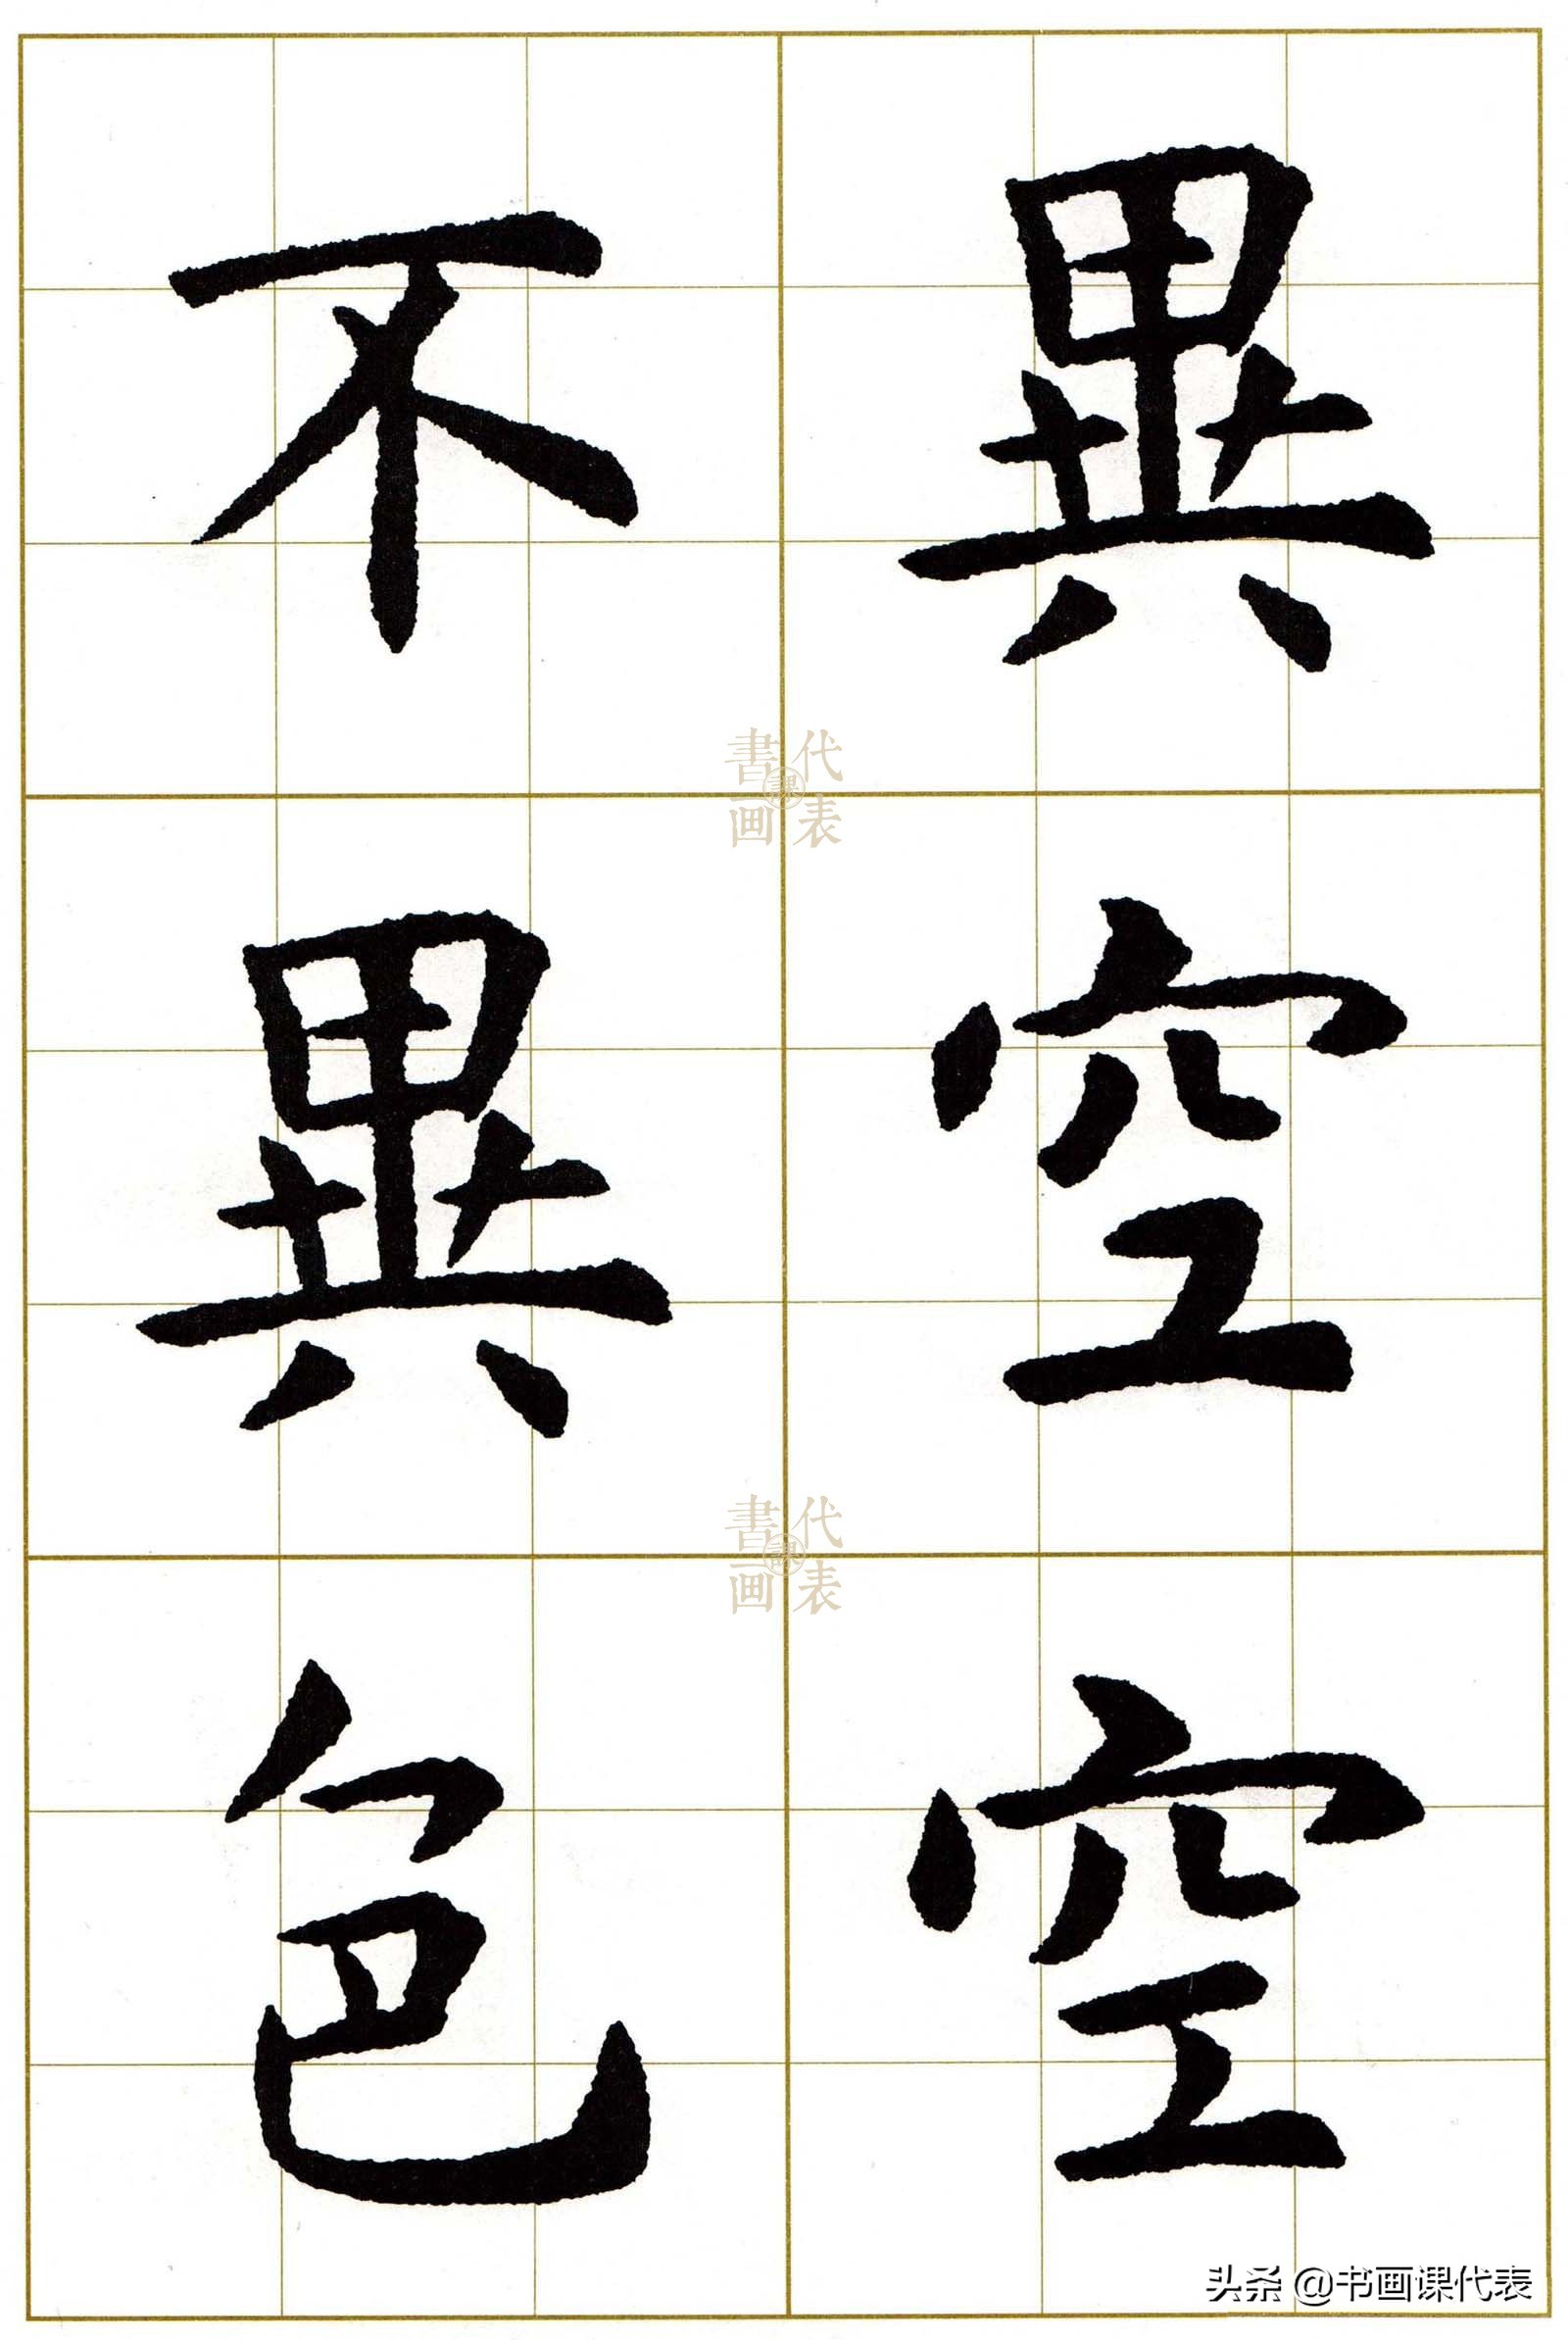 異空空
不異色
書画課代表
書画課代表
头条 @书画课代表